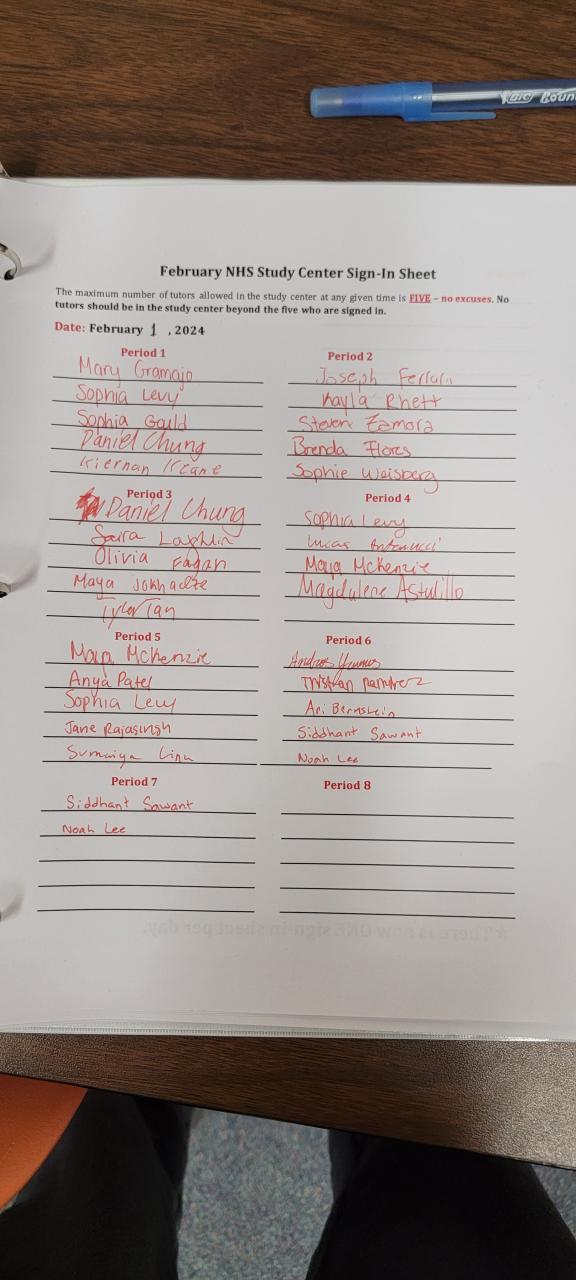 BIC Roun
February NHS Study Center Sign-In Sheet
The maximum number of tutors allowed in the study center at any given time is FIVE – no excuses. No
tutors should be in the study center beyond the five who are signed in.
Date: February 1 , 2024
Period 1
Mary Gramajo
Sophia Levy
Sophia Gould
Daniel Chung
Kiernan Keane
Period 2
Joseph
Kayla Rhett
Steven Zamora
Brenda Flores
Sophie Weisberg
Period 3
Daniel Chung
Saira Laghlin
Olivia Fagan
Maya Jokhadze
Tyler Tan
Period 4
Sophia Levy
Lucas Antonucci
Maya McKenzie
Magdalene Astudillo
Period 5
Maya McKenzie
Anya Patel
Sophia Levy
Jane Rajasingh
Sumaiya
Period 6
Andres
Tristan Ramirez
Ari Bernstein
Siddhant Sawant
Noah Lee
Period 7
Siddhant Sawant
Noah Lee
Period 8
*There is now ONE sign-in sheet per day.